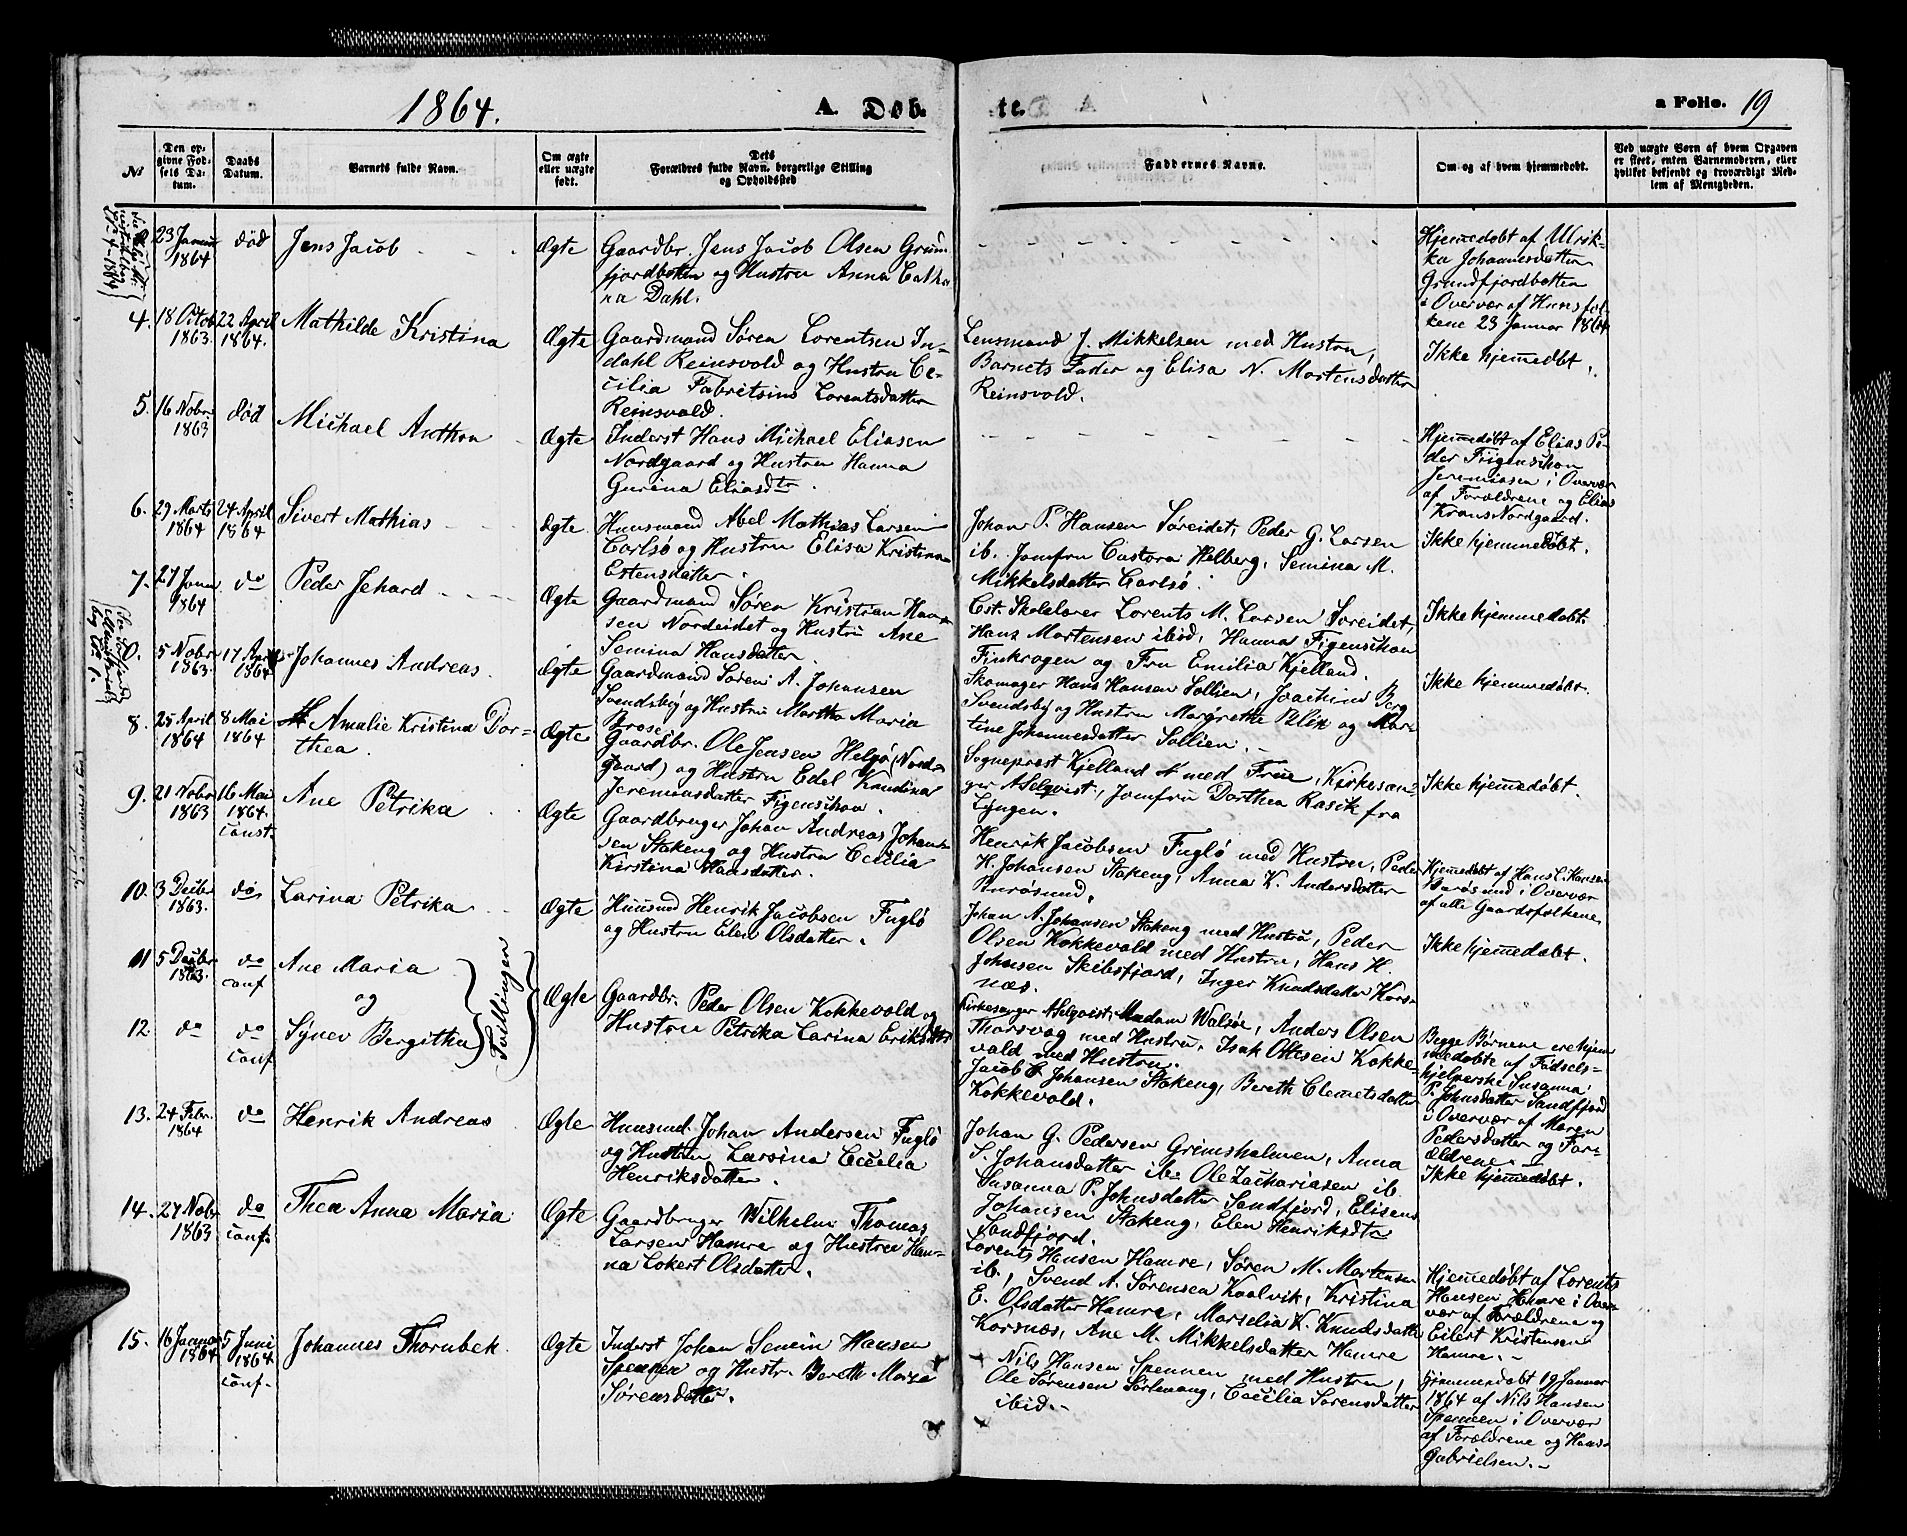 1864.
A. Døb-
te.
a Folio. 19
No
Den opgivne Fødsels Datum.
Daabs Datum.
Barnets fulde Navn.
Om ægte eller uægte født.
Dets Forældres fulde Navn, borgerlige Stilling og Opholdssted
Faddernes Navne.
Om og af hvem hjemmedøbt.
Ved uægte Børn af hvem Opgaven er skeet, enten Barnemoderen, eller hvilket bekjendt og troværdigt Medlem af Menigheden.
23 Januar
1864
død
Jens Jacob
Ægte
Gaardbr. Jens Jacob Olsen Grun-
fjordbotten og Hustru Anna Catha
na Dahl.
Hjemmedøbt af Ulrik-
ka Johannesdatter
Grundfjordbotten
i Overvær af Huusfol-
kene 23 Januar 1864
4. 18 Octob
1863.
22 April
1864.
Mathilde Kristina
Ægte
Gaardmand Søren Lorentsen In-
dahl Reinsvold og Hustru Ce-
cilia Fabritsine Lorentsdatter
Reinsvold.
Lensmand J. Mikkelsen med Hustru,
Barnets Fader og Elisa N. Mortensdatter
Reinsvold.
Ikke hjemmedøbt.
5. 16 Nobr
1863
død
Michael Anthon
Ægte
Inderst Hans Michael Eliasen
Nordgaard og Hustru Hanna
Gurina Eliasdtr.
Hjemmedøbt af Elias Pe-
der Figenschou
Jeremiasen i Overvær
af Forældrene og Elias
Krans Nordgaard.
6. 29 Marts
1864
24 April
1864
Sivert Mathias
Ægte
Huusmand Abel Mathias Larsen
Carlsø og Hustru Elisa Kristina
Estensdatter.
Johan P. Hansen Søreidet, Peder G. Larsen
ib. Jomfru Castora Helberg, Semina M.
Mikkelsdatter Carlsø.
Ikke hjemmedøbt.
7. 27 Janu
1864
do
Peder Jehard
Ægte
Gaardmand Søren Kristian Han-
sen Nordeidet og Hustru Ane
Semina Hansdatter.
Cst. Skolelærer Lorents M. Larsen Søreidet,
Hans Mortensen ibid, Hanna Figenschou
Finkrogen og Fru Emilia Kjelland.
Ikke hjemmedøbt.
5 Nobr
1863.
17 April
1864
Johannes Andreas.
Ægte
Gaardmand Søren A. Johansen
Svendsby og Hustru Martha Maria
Brose.
Skomager Hans Hansen Sollien, Joachim Berg
Svendsby og Hustru Margrethe Blix og Mar-
tine Johannesdatter Sollien.
Ikke hjemmedøbt.
8. 25 April
1864
8 Mai
1864
Amalie Kristina Dor-
thea.
Ægte
Gaardbr. Ole Jensen Helgø (Nord-
gaard) og Hustru Edel Kaudina
Jeremiasdatter Figenschou.
Sogneprest Kjelland med Frue, Kirkesan-
ger A Selqvist, Jomfru Dorthea Rasik fra
Lyngen.
Ikke hjemmedøbt.
9. 21 Nobr
1863
16 Mai
1864.
const.
Ane Petrika
Ægte
Gaardbruger Johan Andreas Johan-
sen Stakeng og Hustru Cecilia
Kirstina Hansdatter.
Henrik Jacobsen Fuglø med Hustru, Peder
H. Johansen Stakeng, Anna K. Andersdatter
Burøsund.
Hjemmedøbt af Hans L. Hansen
Burøsund i Overvær
af alle Gaardsfolkene
10. 3 Decbr
1863.
do
Larina Petrika
Ægte
Huusmd Henrik Jacobsen Fuglø
og Hustru Elen Olsdatter.
Johan A. Johansen Stakeng med Hustru, Peder
Olsen Kokkevold med Hustru, Hans H.
Johnsen Skibsfjord, Inger Knudsdatter Kors-
næs.
Ikke hjemmedøbt.
11 5 Decbr
1863.
do
conf
Ane Maria
og
12. do
do
conf
Synev Bergitha
Tvillinger
Ægte
Gaardbr. Peder Olsen Kokkevold og
Hustru Petrika Larina Eriksdatr
Kirkesanger A Selqvist, Madam Walsøe, Anders Olsen
Thorsvog med Hustru, Isak Ottesen Kokke-
vold med Hustru.
Jacob E Johansen Stakeng, Bereth Clemetsdatter
Kokkevold.
Begge Børnene ere hjem
medøbte af Fødsels-
hjelperske Susanna
P. Johnsdatter Sandfjord
i Overvær af Maren
Pedersdatter og For-
ældrene
13. 24 Febr.
1864
do
Henrik Andreas
Ægte
Huusmd. Johan Andersen Fuglø
og Hustru Larsina Cecilia
Henriksdatter.
Johan G. Pedersen Grimsholmen, Anna
S. Johansdatter ib. Ole Zachariasen ib.
Susanna P. Johnsdatter Sandfjord, Elisens
Johansen Stakeng, Elen Henriksdtr
Sandfjord.
Ikke hjemmedøbt.
14. 27 Nobr
1863
do
conf.
Thea Anna Maria
Ægte
Gaardbruger Wilhelm Thomas
Larsen Hamre og Hustru Han-
na Lokert Olsdatter.
Lorents Hansen Hamre, Søren M. Mortensen
ib., Svend A. Sørensen Kaalvik, Kristina
E. Olsdatter Hamre, Marselia K. Knudsdatter
Korsnæs, Ane M. Mikkelsdatter Hamre
Hjemmedøbt af Lorents
Hansen Hamre i Over-
vær af Forældrene og
Eilert Kristensen
Hamre.
15. 16 Januar
1864
5 Juni
1864
conf.
Johannes Thornbek.
Ægte
Inderst Johan Senein Hansen
Spennen og Hustr. Bereth Maria
Sørensdatter.
Nils Hansen Spennen med Hustru,
Ole Sørensen Sørlenang, Cecilia Sørensdatter
ibid.
Hjemmedøbt 19 Januar
1864 af Nils Hansen
Spennen i Overvær
af Forældrene og Hans
Gabrielsen.